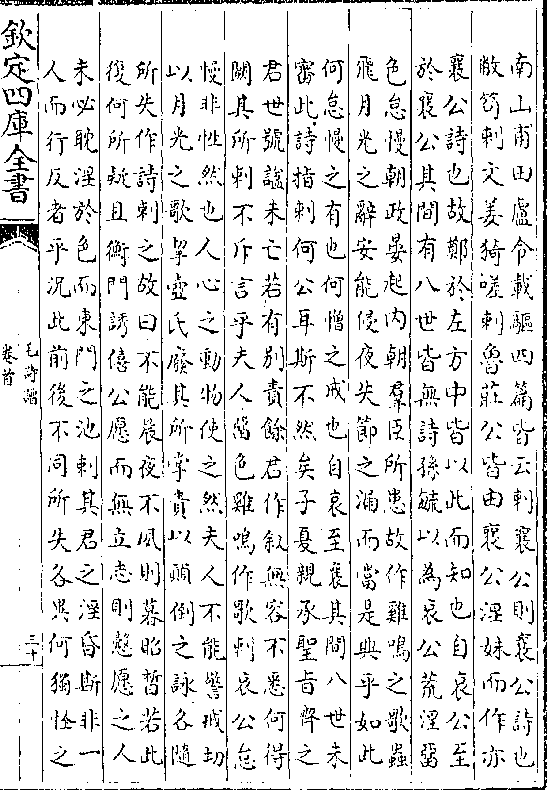 南山甫田盧令載驅四篇皆云刺襄公則襄公詩也
敝笱刺文姜猗嗟刺魯莊公皆由襄公淫妹而作亦
襄公詩也故鄭於左方中皆以此而知也自哀公至
於襄公其間有八世皆無詩孫毓以為哀公荒淫留
色怠慢朝政晏起内朝羣臣所患故作雞鳴之歌蟲
飛月光之辭安能侵夜失節之漏而當是興乎如此
何怠慢之有也何憎之戒也自哀至襄其間八世未
審此詩指刺何公耳斯不然矣子夏親承聖旨齊之
君世號諡未亡若有别責餘君作叙無容不悉何得
闕其所刺不斥言乎夫人留色雞鳴作歌刺哀公怠
慢非性然也人心之動物使之然夫人不能警戒劫
以月光之歌挈壺氏廢其所掌責以顛倒之詠各隨
所失作詩刺之故曰不能辰夜不夙則暮昭晢若此
復何所疑且衡門誘僖公愿而無立志則慤愿之人
未必耽淫於色而東門之池刺其君之淫昏斯非一
人而行反者乎況此前後不同所失各異何獨怪之
欽定四庫全書
毛詩譜
卷首
三十